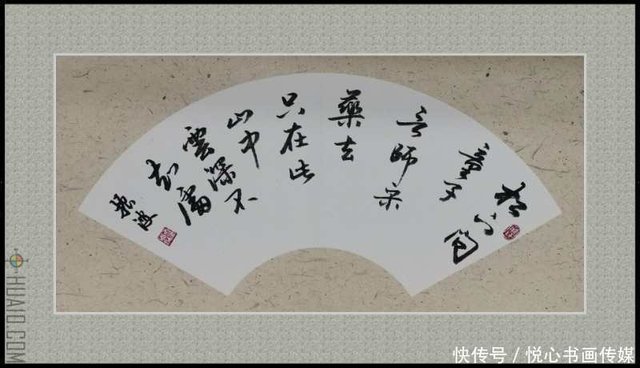 松下问
童子
言師采
藥去
只在此
山中
雲深不
知處
HUAIO.COM
快传号/悦心书画传媒